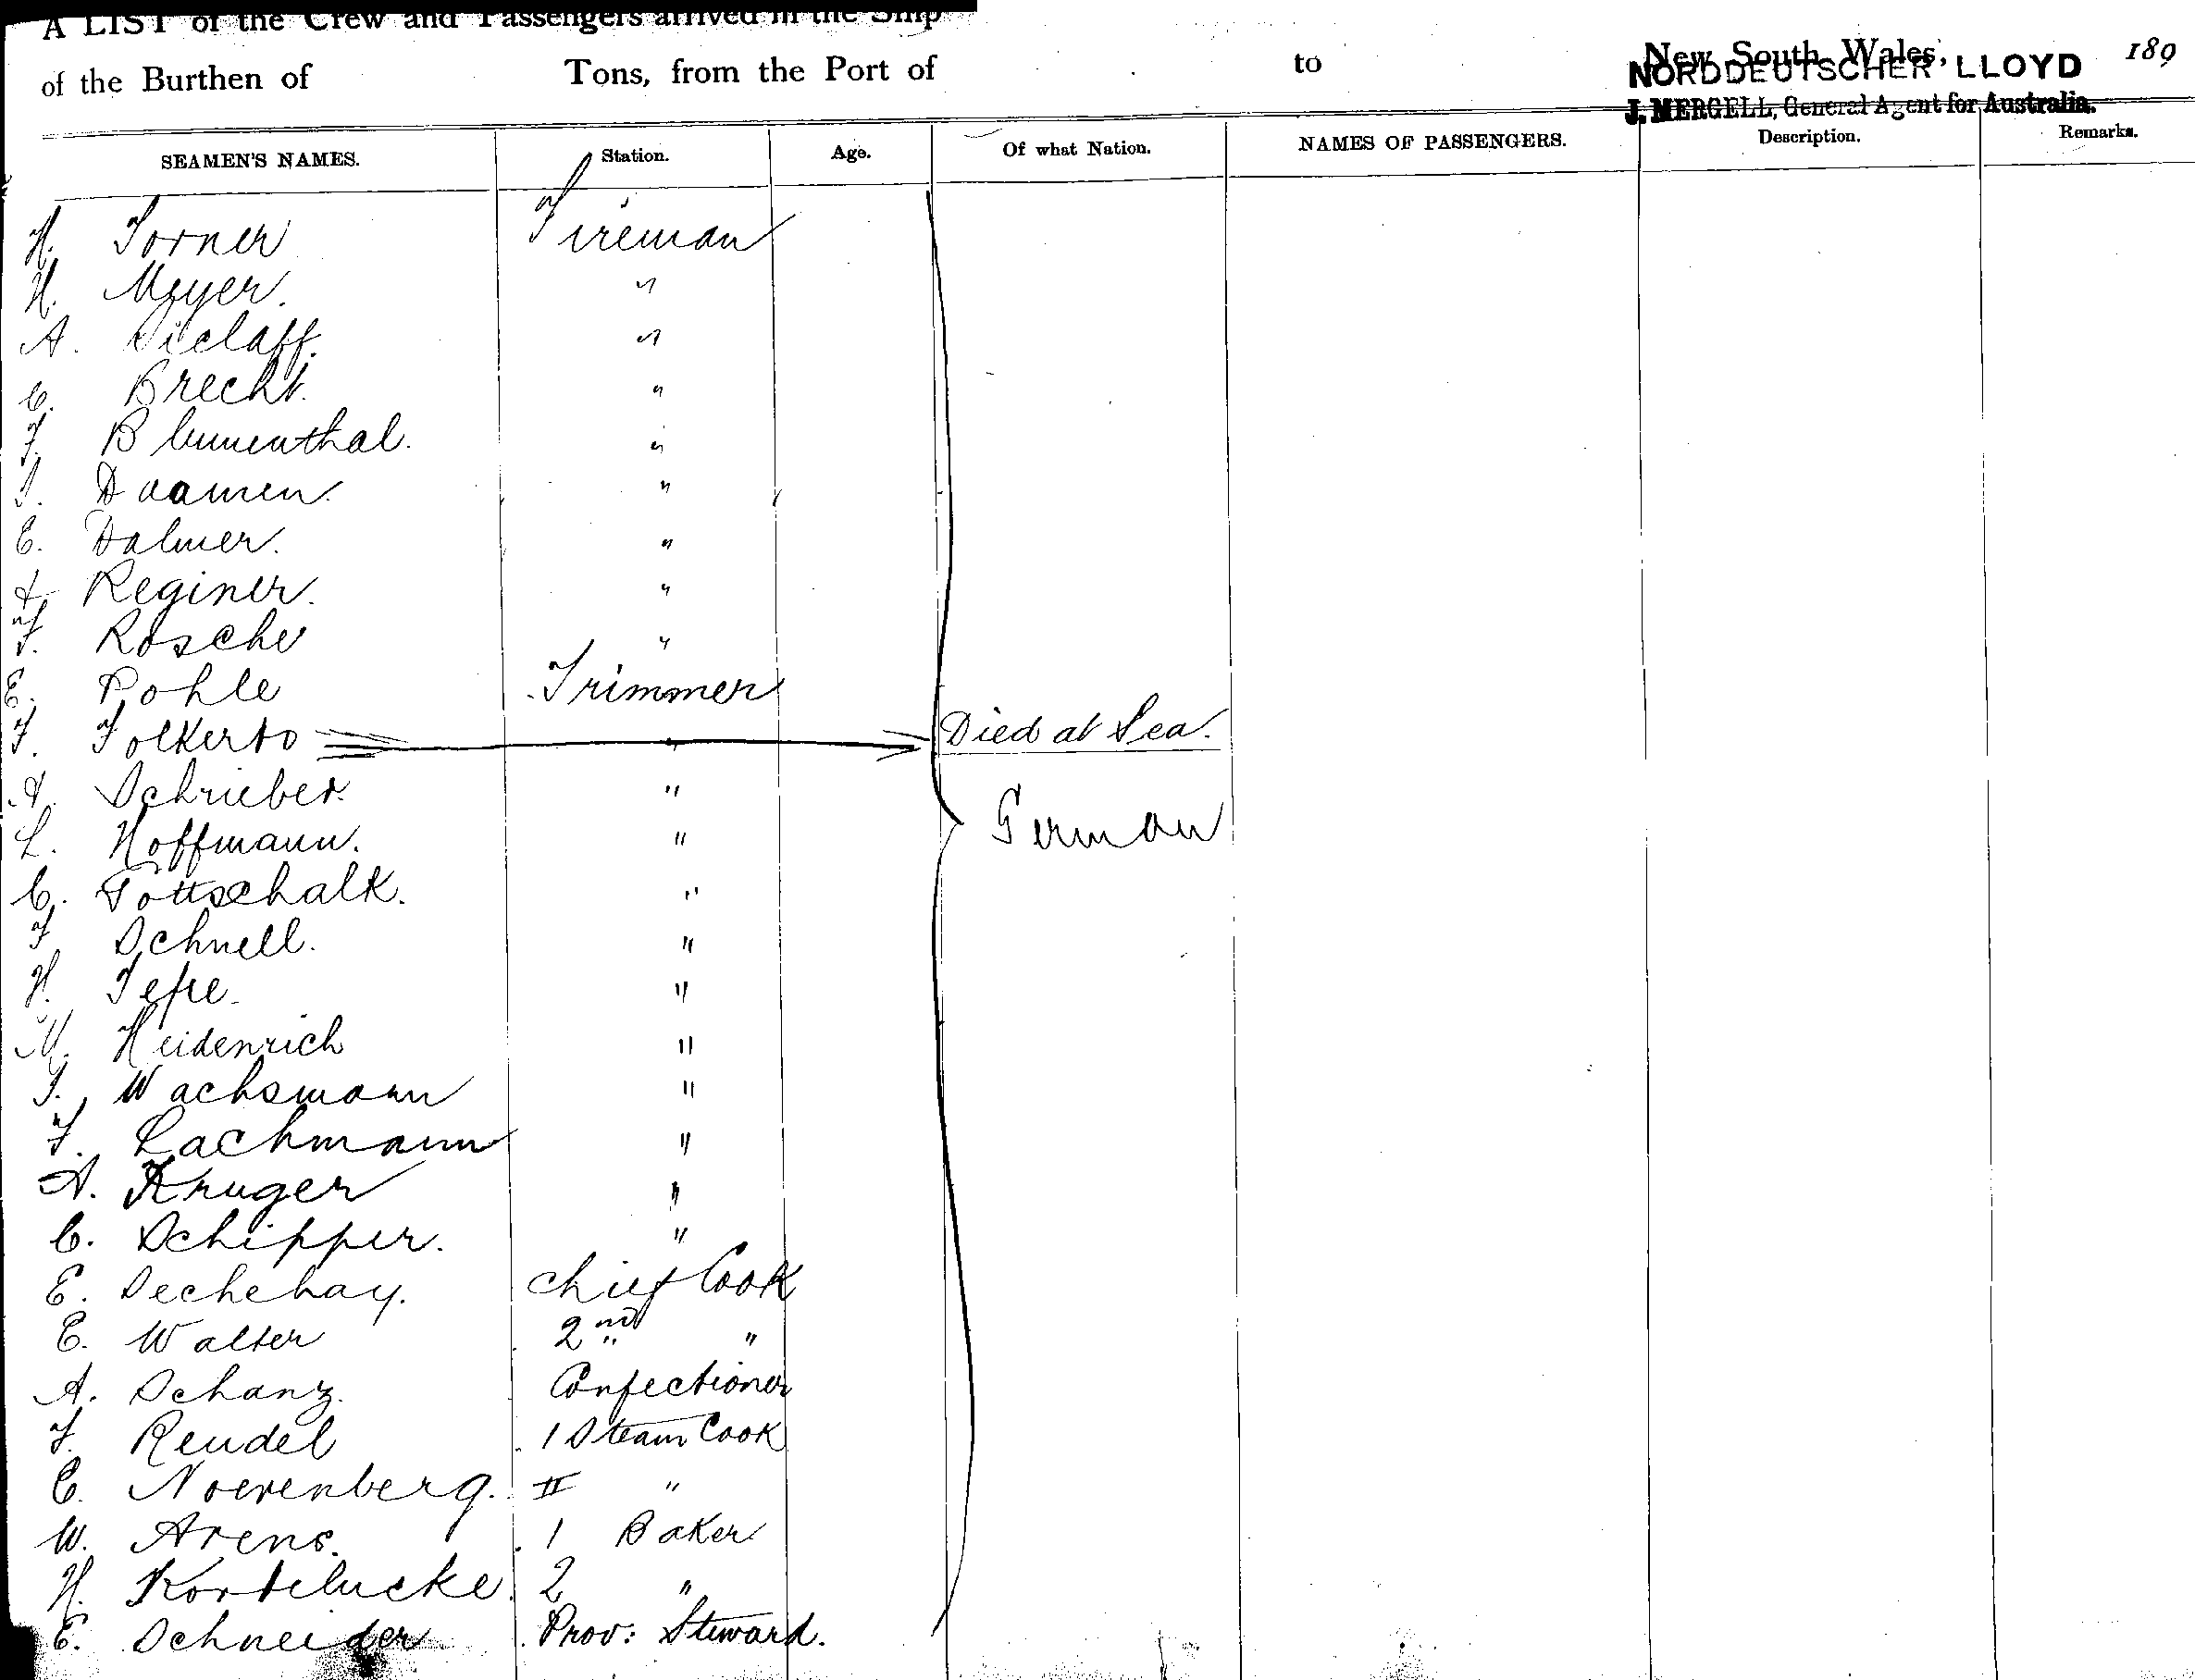 A LIST of the Crew and Passengers arrived in the Ship
of the Burthen of Tons, from the Port of to New South Wales, 189
NORDDEUTSCHER LLOYD
J. MERGELL, General Agent for Australia.
SEAMEN'S NAMES. Station. Age. Of what Nation. NAMES OF PASSENGERS. Description. Remarks.
H. Forner Fireman
H. Meyer. "
A. "
C. Brecht. "
F. Blumenthal. "
J. Daamen. "
E. Dalmer. "
Reginer. "
F. Rosche "
E. Pohle Trimmer
F. Folkerts " Died at Sea.
A. Schrieber. "
L. Hoffmann. " German
C. Gottschalk. "
F Schnell. "
H. Tepe. "
M. Heidenrich "
J. Wachsmann "
F. Lachmann "
A. Kruger "
C. Schipper. "
E. Dechehay. Chief Cook
E. Walter 2nd "
A. Schanz. Confectioner
F. Reudel 1 Steam Cook
C. Noerenberg. II "
W. Arens. 1 Baker
H. Kortelucke. 2 "
E. Schneider Prov: Steward.